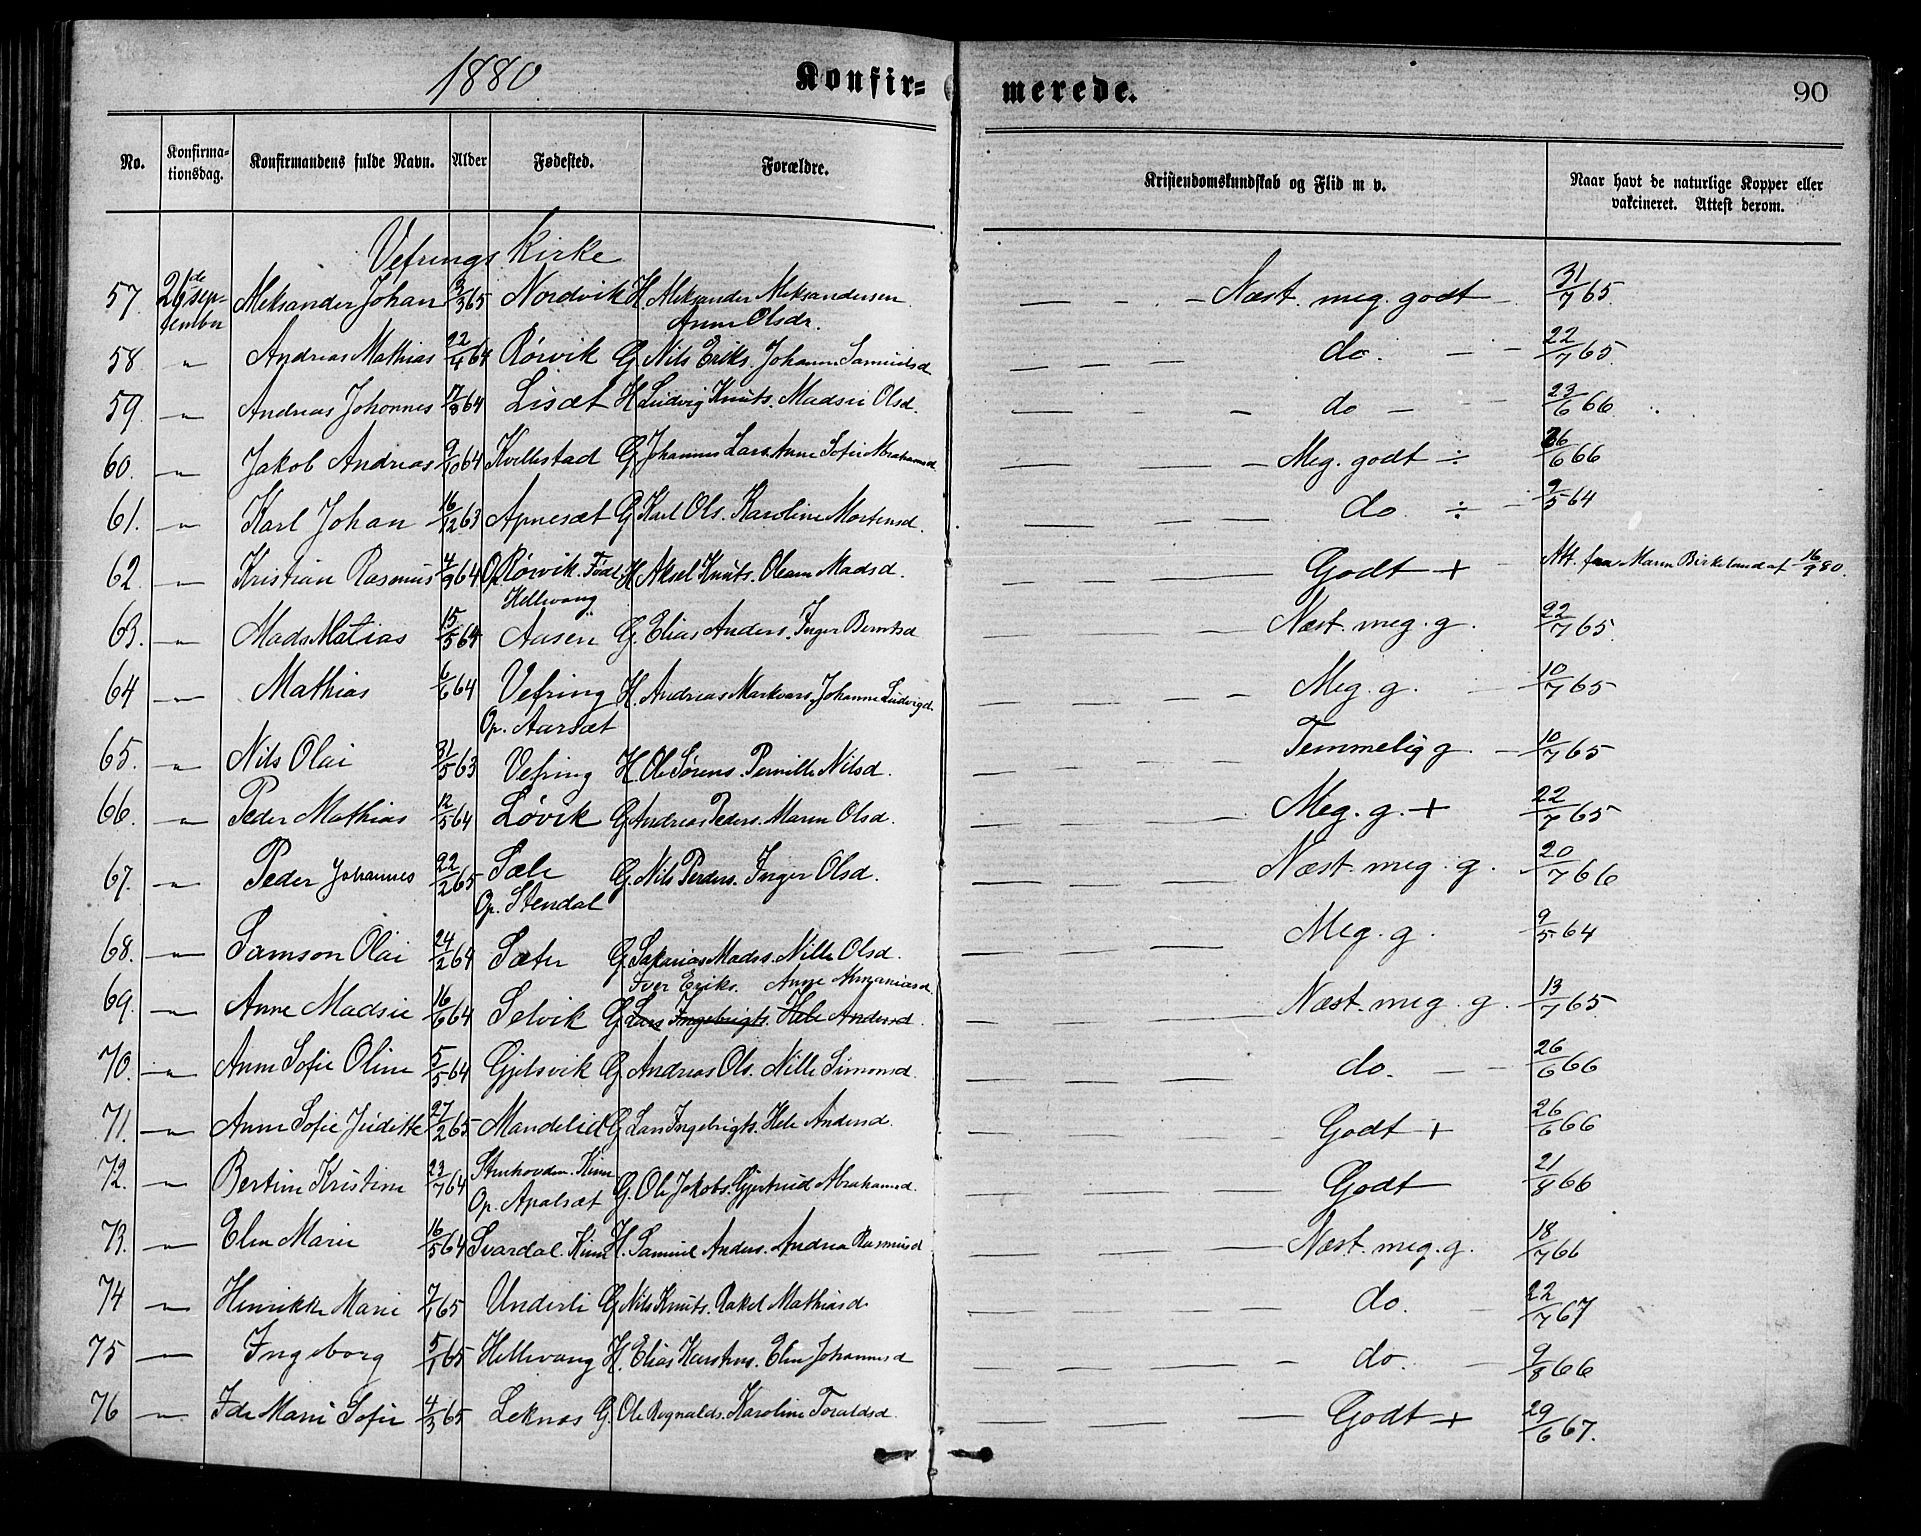 1880 Konfir= merede. 90
No. Konfirma-tionsdag. Konfirmandens fulde Navn. Alder Fødested. Forældre. Kristendomskundskab og Flid m v. Naar havt de naturlige Kopper eller vakcineret. Attest derom.
Vefrings Kirke
57. 26de September Aleksander Johan 3/3 65 Nordvik H. Aleksander Aleksandersen Anne Olsdr. — — - — Næst. meg. godt — 31/7 65.
58. " Andreas Mathias 22/4 64 Rørvik G Nils Eriks. Johanne Samuelsd — — — do. — — 22/7 65.
59. " Andreas Johannes 17/8 64 Lisæt H Ludvig Knuts. Madsie Olsd. — — - do — 23/6 66.
60. " Jakob Andreas 9/10 64 Kvellestad G Johannes Lars. Anne Sofie Abrahamsd — — — - Meg. godt ÷ 26/6 66
61. " Karl Johan 16/12 63 Apnesæt G Karl Ols. Karoline Mortensd. — — — — do. ÷ - 9/5 64
62. " Kristian Rasmus 4/9 64 Op. Rørvik. Født Hellevang H Aksel Knuts. Oleane Madsd. — — — — Godt + Att. fra Maren Birkeland af 16/9 80.
63. " Mads Matias 15/5 64 Aasen G Elias Anders. Inger Berntsd — — — Næst. meg. g. 22/7 65.
64 " Mathias 6/6 64 Vefring Op. Aarsæt H. Andreas Markvars. Johanne Ludvigd. — — — - Meg. g. — 10/7 65
65. " Nils Olai 31/5 63 Vefring H Ole Sørens. Pernille Nilsd. — — — — Temmelig g. — 10/7 65
66. " Peder Mathias 12/5 64 Løvik G Andreas Peders. Maren Olsd. — — — Meg. g. + 22/7 65
67. " Peder Johannes 22/2 65 Sæle Op. Stendal G. Nils Peders. Inger Olsd. — — — — Næst. meg. g. 20/7 66
68. " Samson Olai 24/2 64 Sæter G. Sakarias Mads. Nille Olsd. — — — Meg. g. 9/5 64
69. " Anne Madsie 16/6 64 Selvik G Iver Eriks. Anne Ananiasd. Lars Ingebrigts. Hele Andersd. — — — Næst. meg. g. 13/7 65
70. " Anne Sofie Oline 5/5 64 Gjelsvik G Andreas Ols. Nille Simonsd. — — — do. — — 26/6 66
71. " Anne Sofie Juditte 27/2 65 Mandelid G Lars Ingebrigts. Hele Andersd. — — — - Godt + 26/6 66
72. " Bertine Kristine 23/7 64 Stenhovden. Kinn Op. Apalsæt G. Ole Jakobs. Gjertrud Abrahamsd. — — — — Godt 21/8 66
73. " Elen Marie 16/5 64 Svardal. Kinn H. Samuel Anders. Andrea Rasmusd — — — — Næst. meg. g. 18/7 66
74 " Henrikke Marie 7/1 65 Underli G Nils Knuts. Rakel Mathiasd. — — — — do. — 22/7 67
75 — Ingeborg 5/1 65 Hellevang H. Elias Karstens. Elen Johannesd — — — — - do. — 9/8 66
76 " Ide Marie Sofie 4/3 65 Leknes G Ole Rognalds. Karoline Toraldsd. — — — Godt + 29/6 67.